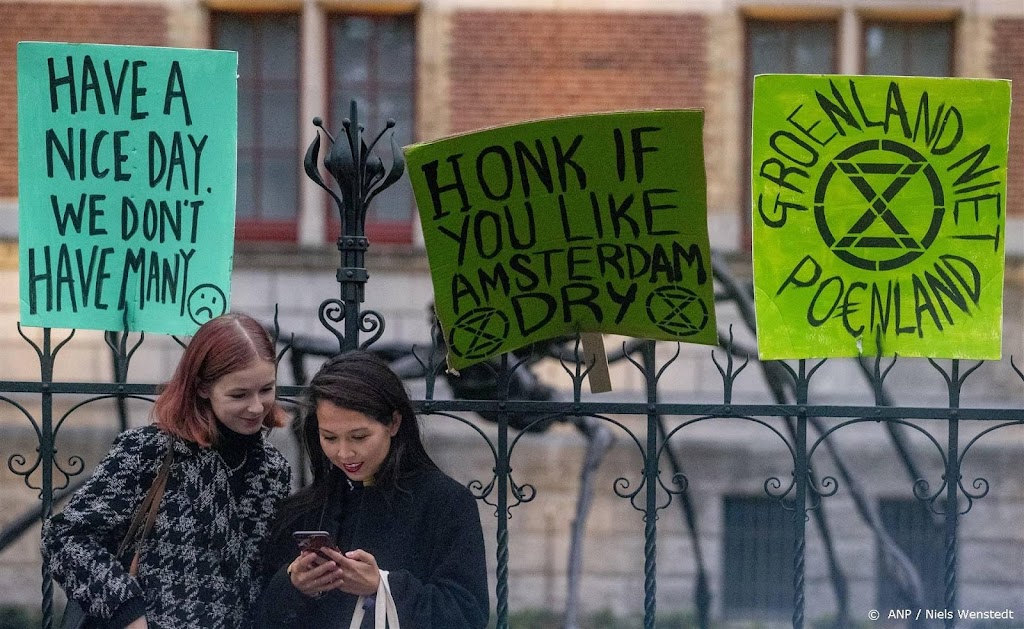 HAVE A
NICE DAY.
WE DON'T
HAVE MANY
HONK IF
YOU LIKE
AMSTERDAM
DRY
GROENLAND NET
PO€NLAND
© ANP / Niels Wenstedt